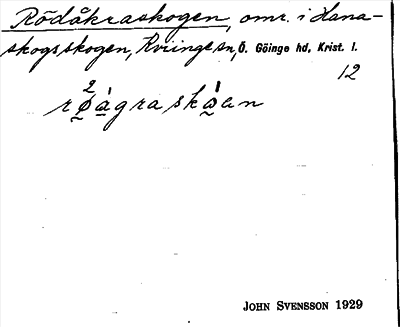 Rödåkraskogen, omr. i Hana-
skogsskogen, Kviinge sn, Ö. Göinge hd, Krist. l.
12
rø̰²a̰̍graskɔ̰̍an
John Svensson 1929